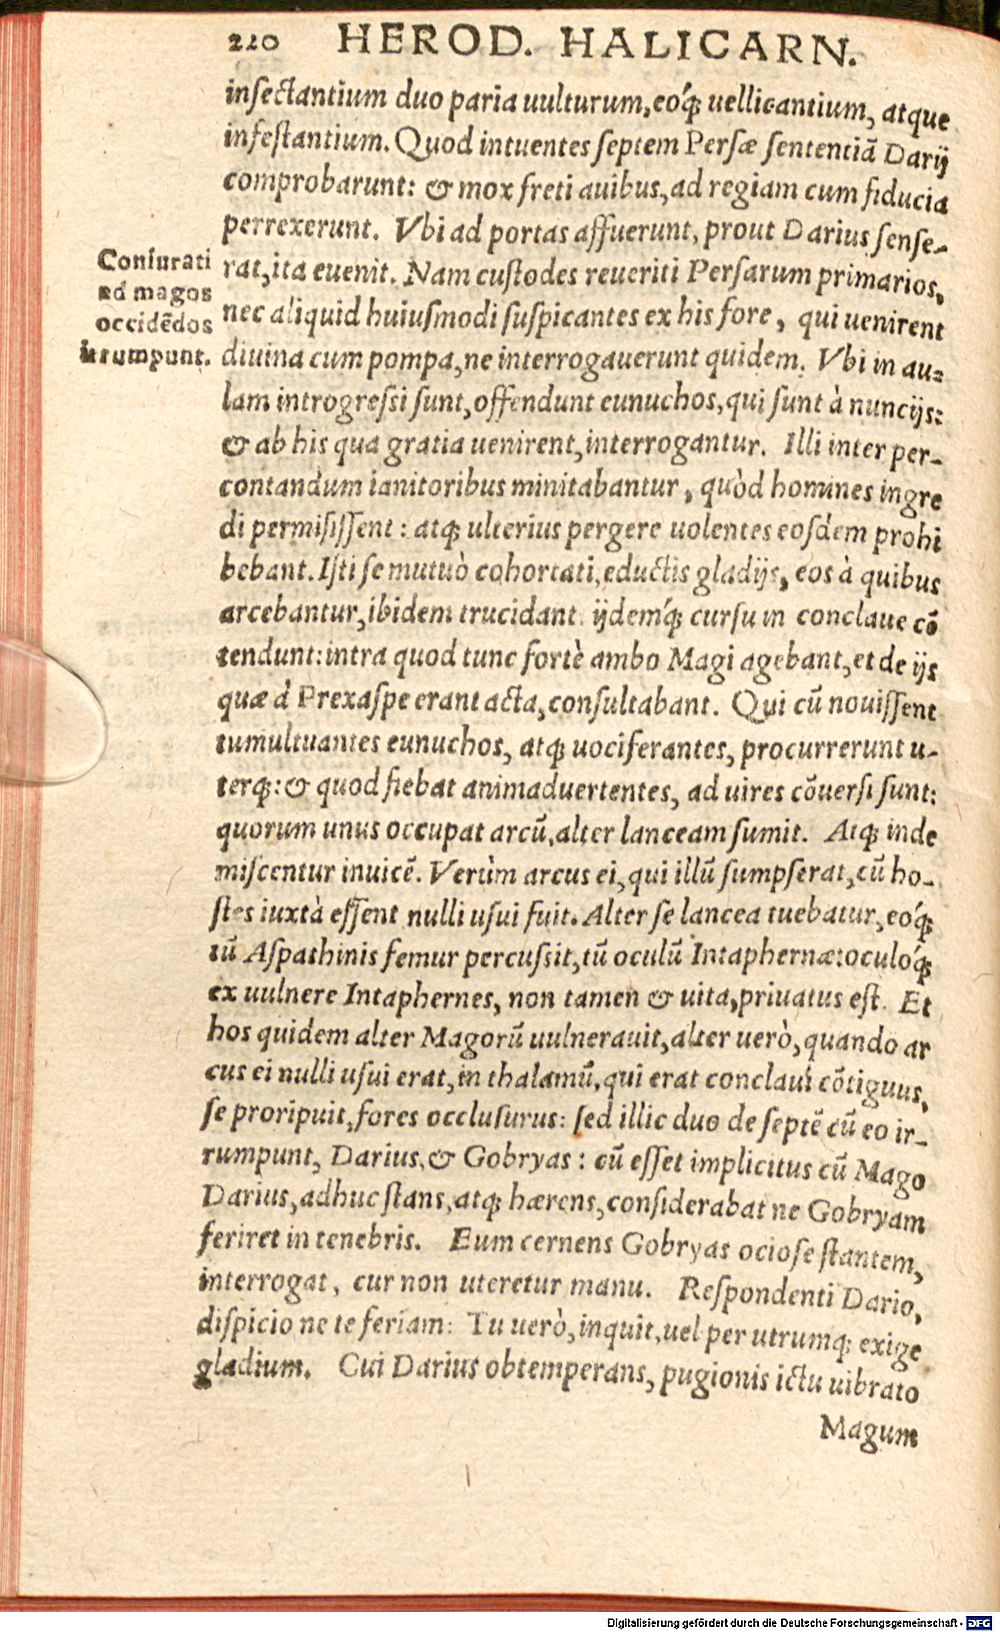 220 HEROD. HALICARN.
insectantium duo paria uulturum, eoq́; uellicantium, atque
infestantium. Quod intuentes septem Persæ sententiā Darij
comprobarunt: & mox freti auibus, ad regiam cum fiducia
perrexerunt. Vbi ad portas affuerunt, prout Darius sense-
rat, ita euenit. Nam custodes reueriti Persarum primarios,
nec aliquid huiusmodi suspicantes ex his fore, qui uenirent
diuina cum pompa, ne interrogauerunt quidem. Vbi in au-
lam introgressi sunt, offendunt eunuchos, qui sunt à nuncijs:
& ab his qua gratia uenirent, interrogantur. Illi inter per-
contandum ianitoribus minitabantur, quòd homines ingre
di permisissent: atq; ulterius pergere uolentes eosdem prohi
bebant. Isti se mutuò cohortati, eductis gladijs, eos à quibus
arcebantur, ibidem trucidant. ijdemq́; cursu in conclaue cō
tendunt: intra quod tunc fortè ambo Magi agebant, et de ijs
quæ à Prexaspe erant acta, consultabant. Qui cū nouissent
tumultuantes eunuchos, atq; uociferantes, procurrerunt u-
terq;: & quod fiebat animaduertentes, ad uires cōuersi sunt:
quorum unus occupat arcū, alter lanceam sumit. Atq; inde
miscentur inuicē. Verùm arcus ei, qui illū sumpserat, cū ho-
stes iuxtà essent nulli usui fuit. Alter se lancea tuebatur, eoq́;
tū Aspathinis femur percussit, tū oculū Intaphernæ: oculoq́;
ex uulnere Intaphernes, non tamen & uita, priuatus est. Et
hos quidem alter Magorū uulnerauit, alter uerò, quando ar
cus ei nulli usui erat, in thalamū, qui erat conclaui cōtiguus,
se proripuit, fores occlusurus: sed illic duo de septē cū eo ir-
rumpunt, Darius, & Gobryas: cū esset implicitus cū Mago
Darius, adhuc stans, atq; hærens, considerabat ne Gobryam
feriret in tenebris. Eum cernens Gobryas ociose stantem,
interrogat, cur non uteretur manu. Respondenti Dario,
dispicio ne te feriam: Tu uerò, inquit, uel per utrumq; exige
gladium. Cui Darius obtemperans, pugionis ictu uibrato
Magum
Coniurati
ad magos
occidēdos
irrumpunt.
Digitalisierung gefördert durch die Deutsche Forschungsgemeinschaft - DFG